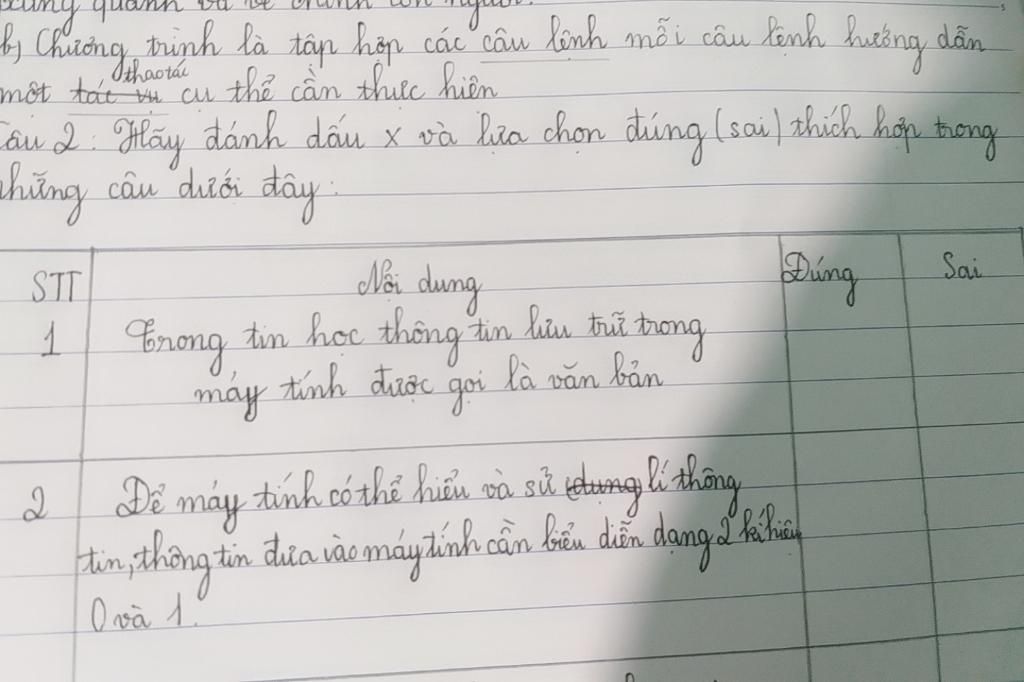 xung quanh và về chính con người.
b) Chương trình là tập hợp các câu lệnh mỗi câu lệnh hướng dẫn
thao tác
một tác vụ cụ thể cần thực hiện
Câu 2: Hãy đánh dấu x và lựa chọn đúng (sai) thích hợp trong
những câu dưới đây:
STT Nội dung Đúng Sai
1 Trong tin học thông tin lưu trữ trong
máy tính được gọi là văn bản
2 Để máy tính có thể hiểu và sử (dụng) lí thông
tin, thông tin đưa vào máy tính cần biểu diễn dạng 2 kí hiệu
0 và 1.